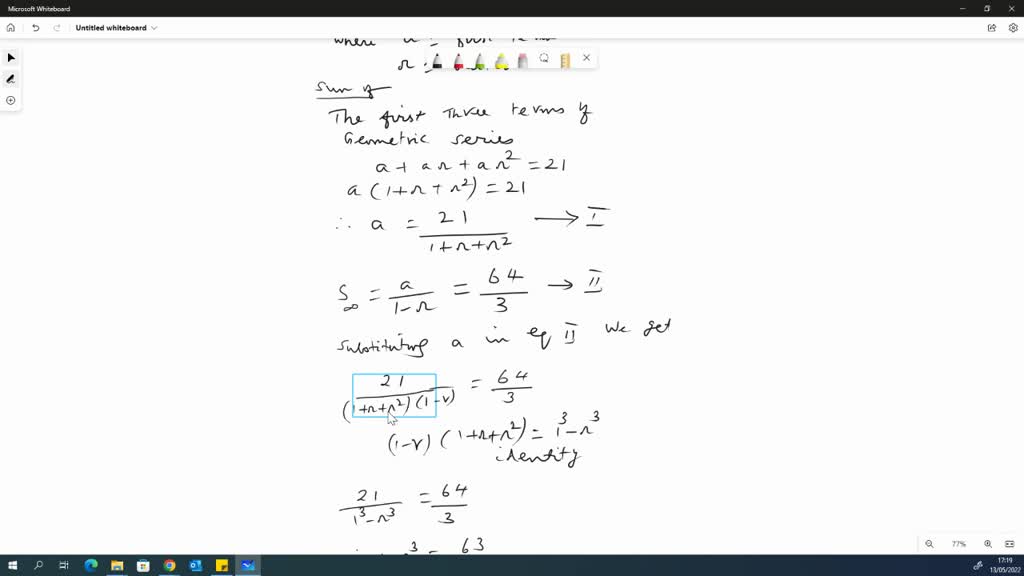 Microsoft Whiteboard
Untitled whiteboard
where a =
r =
Sum of
The first Three terms of
Geometric series
a + ar + ar² = 21
a (1+r+r²) = 21
∴ a = 21/(1+r+r²) → I
S∞ = a/(1-r) = 64/3 → II
substituting a in eq II we get
21/((1+r+r²)(1-r)) = 64/3
(1-r) (1+r+r²) = 1³-r³
identity
21/(1³-r³) = 64/3
r³ = 63
77%
17:19
13/05/2022